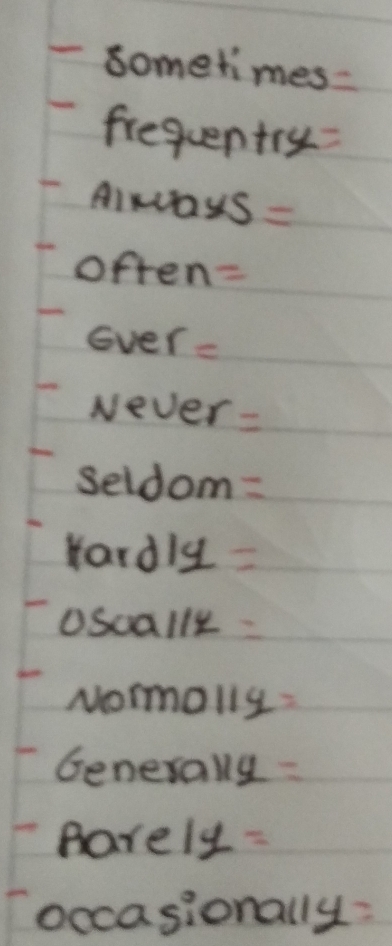 - Sometimes=
- frequentry=
- Always=
- Often=
- Ever=
- Never=
- Seldom=
- Hardly=
- Osually=
- Normally=
- Generally=
- Rarely=
- Occasionally=